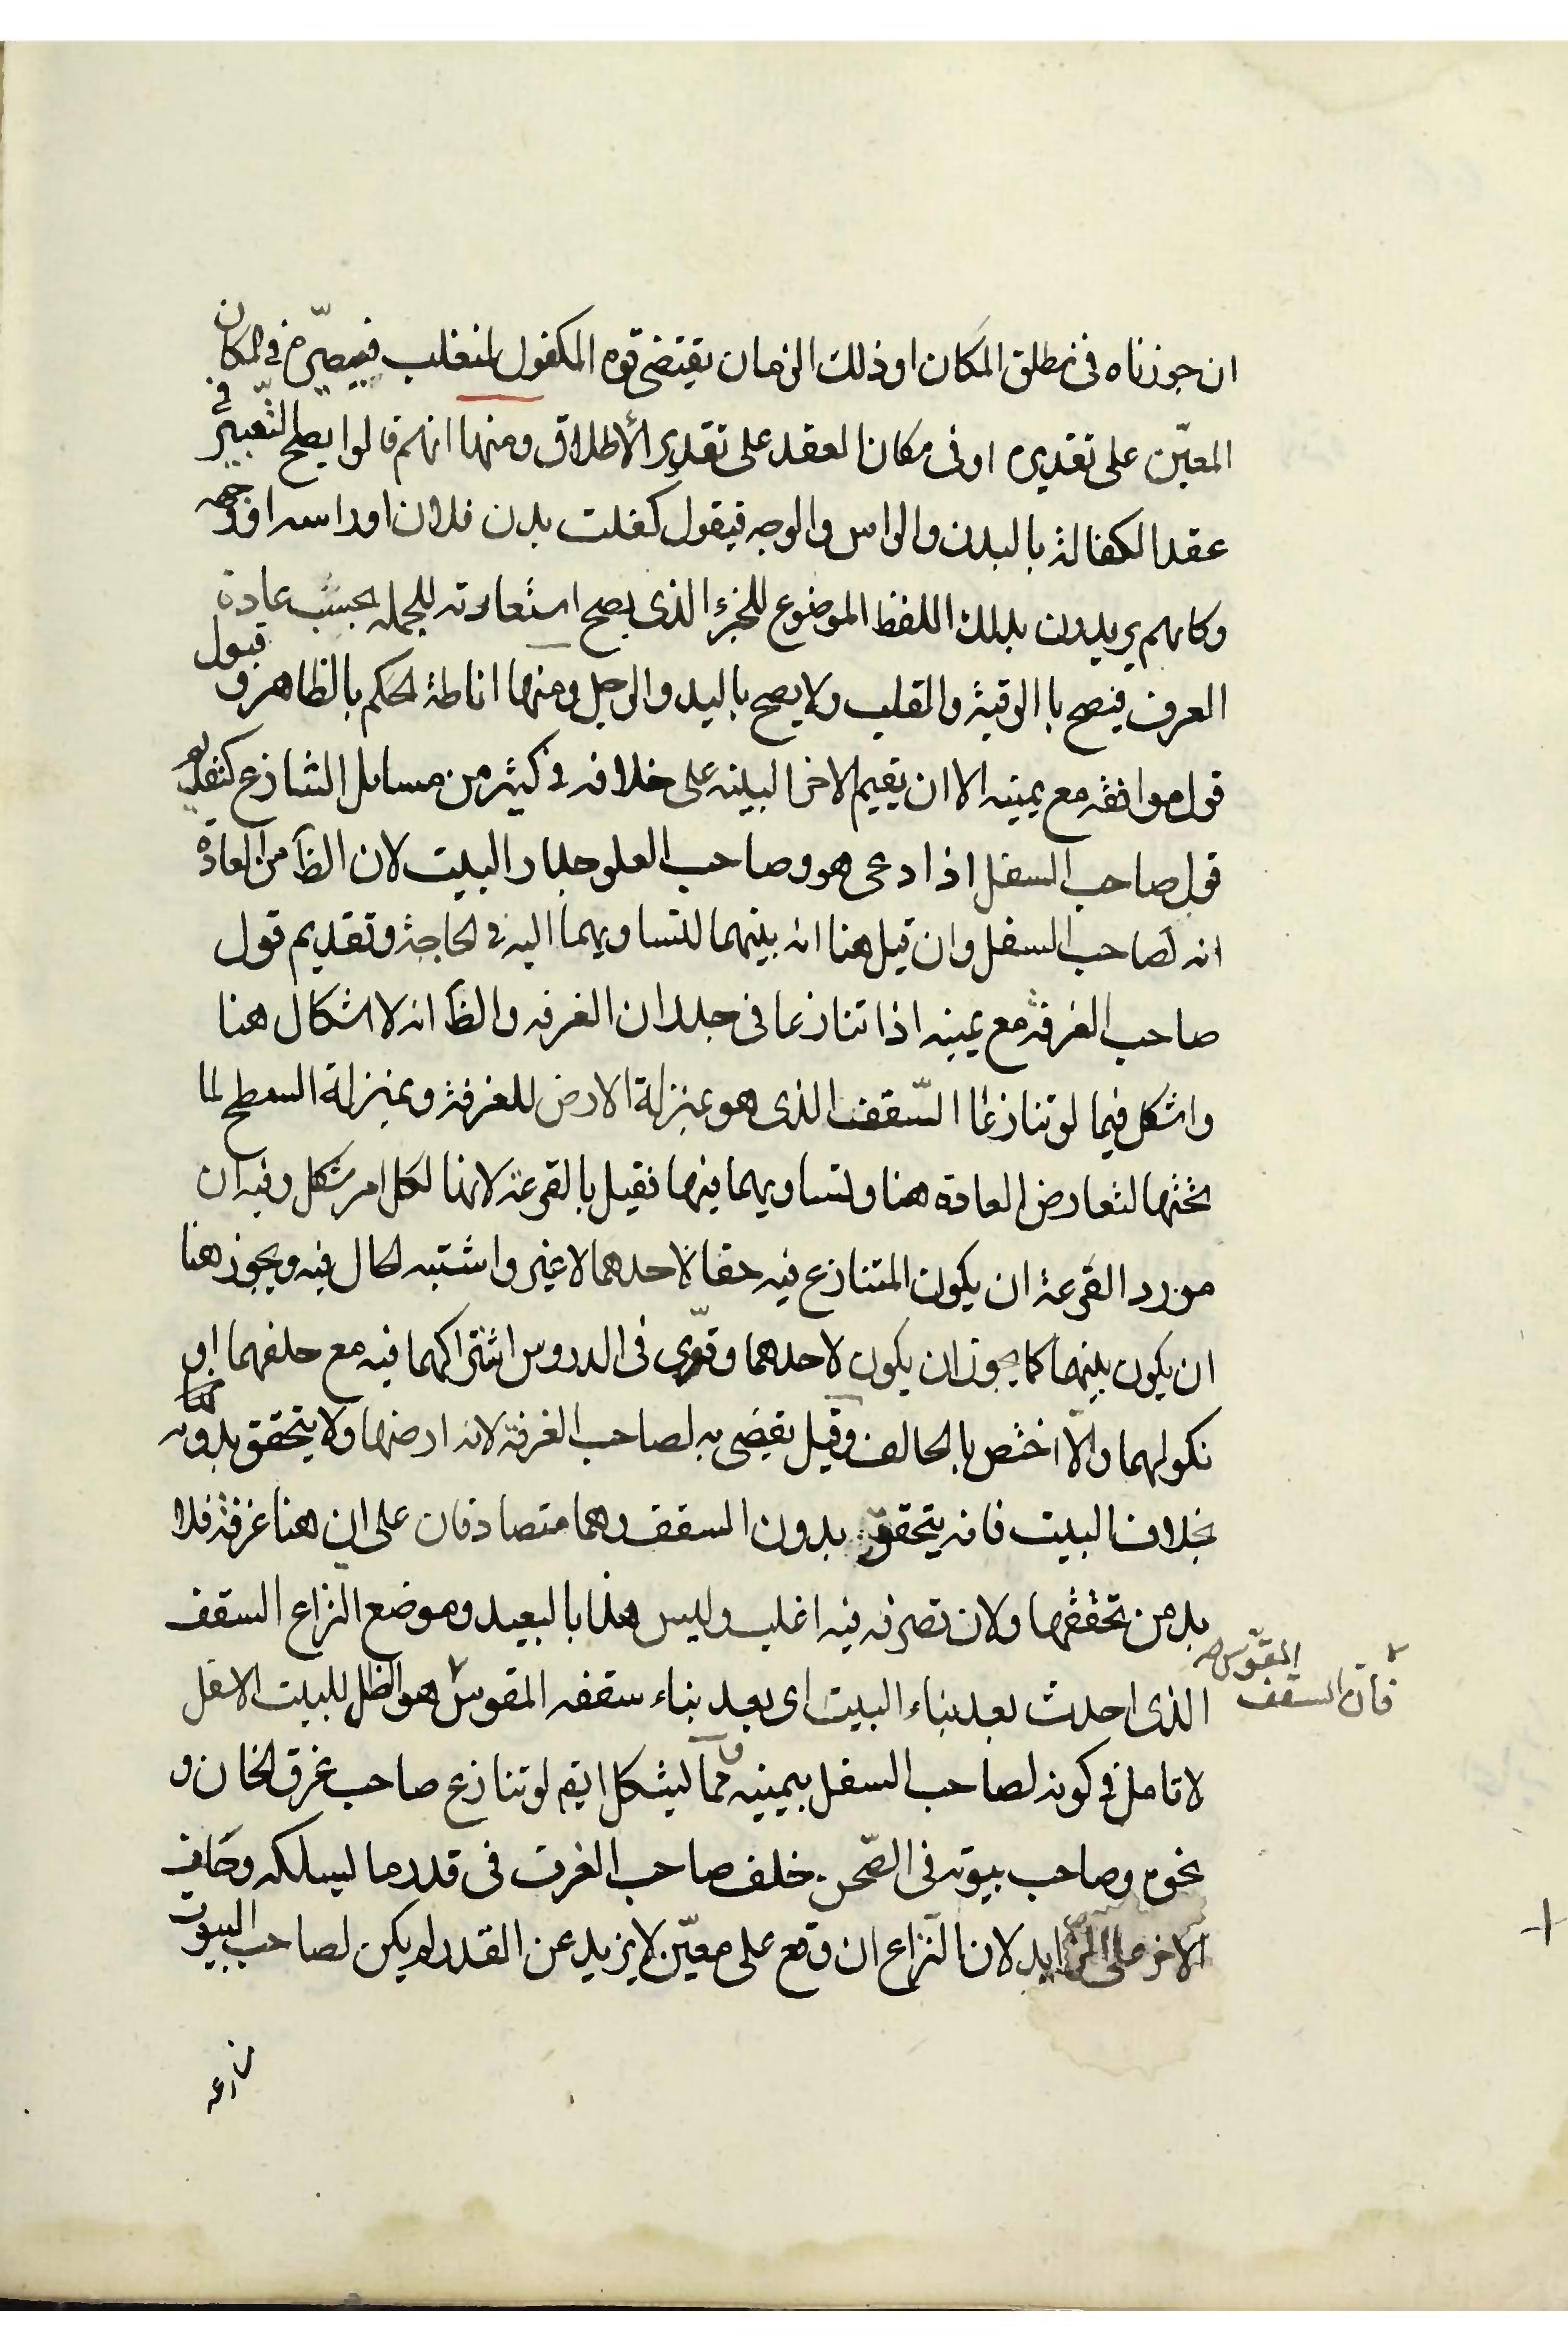 ان جوزناه فى مطلق المكان او ذلك الزمان يقتضى قوه المكفول المتغلب فى المكان
المعيّن على تقديره او فى مكان العقد على تقدير الأطلاق ومنها انهم قالوا يصلح التّعبير فى
عقد الكفالة بالبدن والراس والوجه فيقول كفلت بدن فلان او راسه او وجهه
وكانهم يريدون بذلك اللفظ الموضوع للجزء الذى يصح استعارته للجمله بحسب عادة
العرف فيصح باالرقبة والقلب ولا يصح باليد والرجل ومنها اناطة الحكم بالظاهر و قبول
قول موافقه مع يمينه الا ان يقيم الاخر البينه على خلافه فى كثير من مسايل التنازع كتقديم
قول صاحب السفل اذا دعى هو وصاحب العلو جدار البيت لان الظآ من العادة
انه لصاحب السفل وان قيل هنا انه بينهما لتساويهما اليه فى الحاجة وتقديم قول
صاحب الغرفة مع يمينه اذا تنازعا فى جدران الغرفه والظآ انه لا اشكال هنا
واشكل فيما لو تنازعا السّقف الذى هو بمنزلة الارض للغرفة وبمنزلة السطح لما
تحتها لتعارض العادة هنا ولتساويهما فيها فقيل بالقرعة لانها لكل امر مشكل وفيه ان
مورد القرعة ان يكون المتنازع فيه حقا لاحدهما لا غير واشتبه الحال فيه ويجوز هنا
ان يكون بينهما كما يجوز ان يكون لاحدهما وقوّى فى الدروس اشتراكهما فيه مع حلفهما او
نكولهما والّا اختص بالحالف وقيل يقضى به لصاحب الغرفة لانه ارضها ولا يتحقق بدونه
بخلاف البيت فانه يتحقق بدون السقف وهما متصادقان على ان هنا غرفة فلا
بد من تحققها ولان تصرفه فيه اغلب وليس هذا بالبعيد وموضع النزاع السقف
الذى احدث بعد بناء البيت اى بعد بناء سقفه المقوس هو الظل للبيت الاسفل
فان السقف المقوس
لا تامل فى كونه لصاحب السفل بيمينه ومما ليشكل ايضا لو تنازع صاحب غرف الخان و
نحوه وصاحب بيوته فى الصّحن حلف صاحب الغرف فى قدر ما ليسلكه وحلف
الاخر على الزايد لان النزاع ان وقع على معيّن لا يزيد عن القدر لم يكن لصاحب البيوت